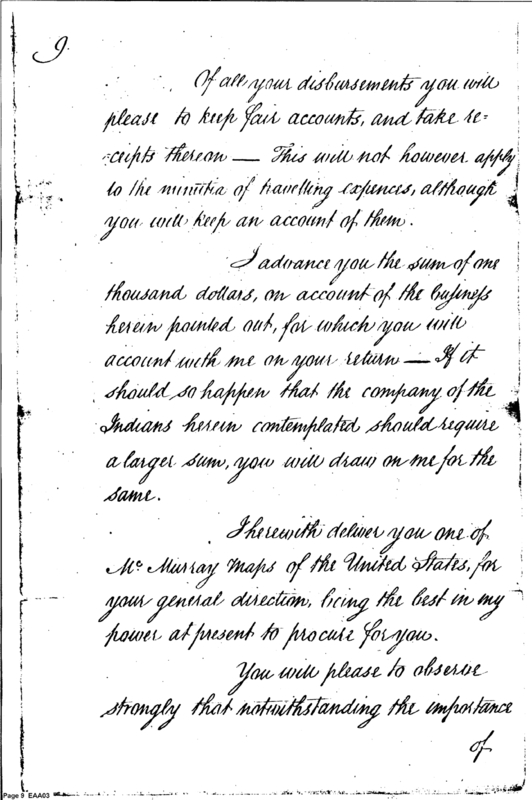 9.
Of all your disbursements you will
please to keep fair accounts, and take re=
=ceipts thereon — This will not however apply
to the minutia of travelling expences, although
you will keep an account of them.
I advance you the sum of one
thousand dollars, on account of the business
herein pointed out, for which you will
account with me on your return — If it
should so happen that the company of the
Indians herein contemplated should require
a larger sum, you will draw on me for the
same.
I herewith deliver you one of
Mc Murray Maps of the United States, for
your general direction, being the best in my
power at present to procure for you.
You will please to observe
strongly that notwithstanding the importance
of
Page 9 EAA03